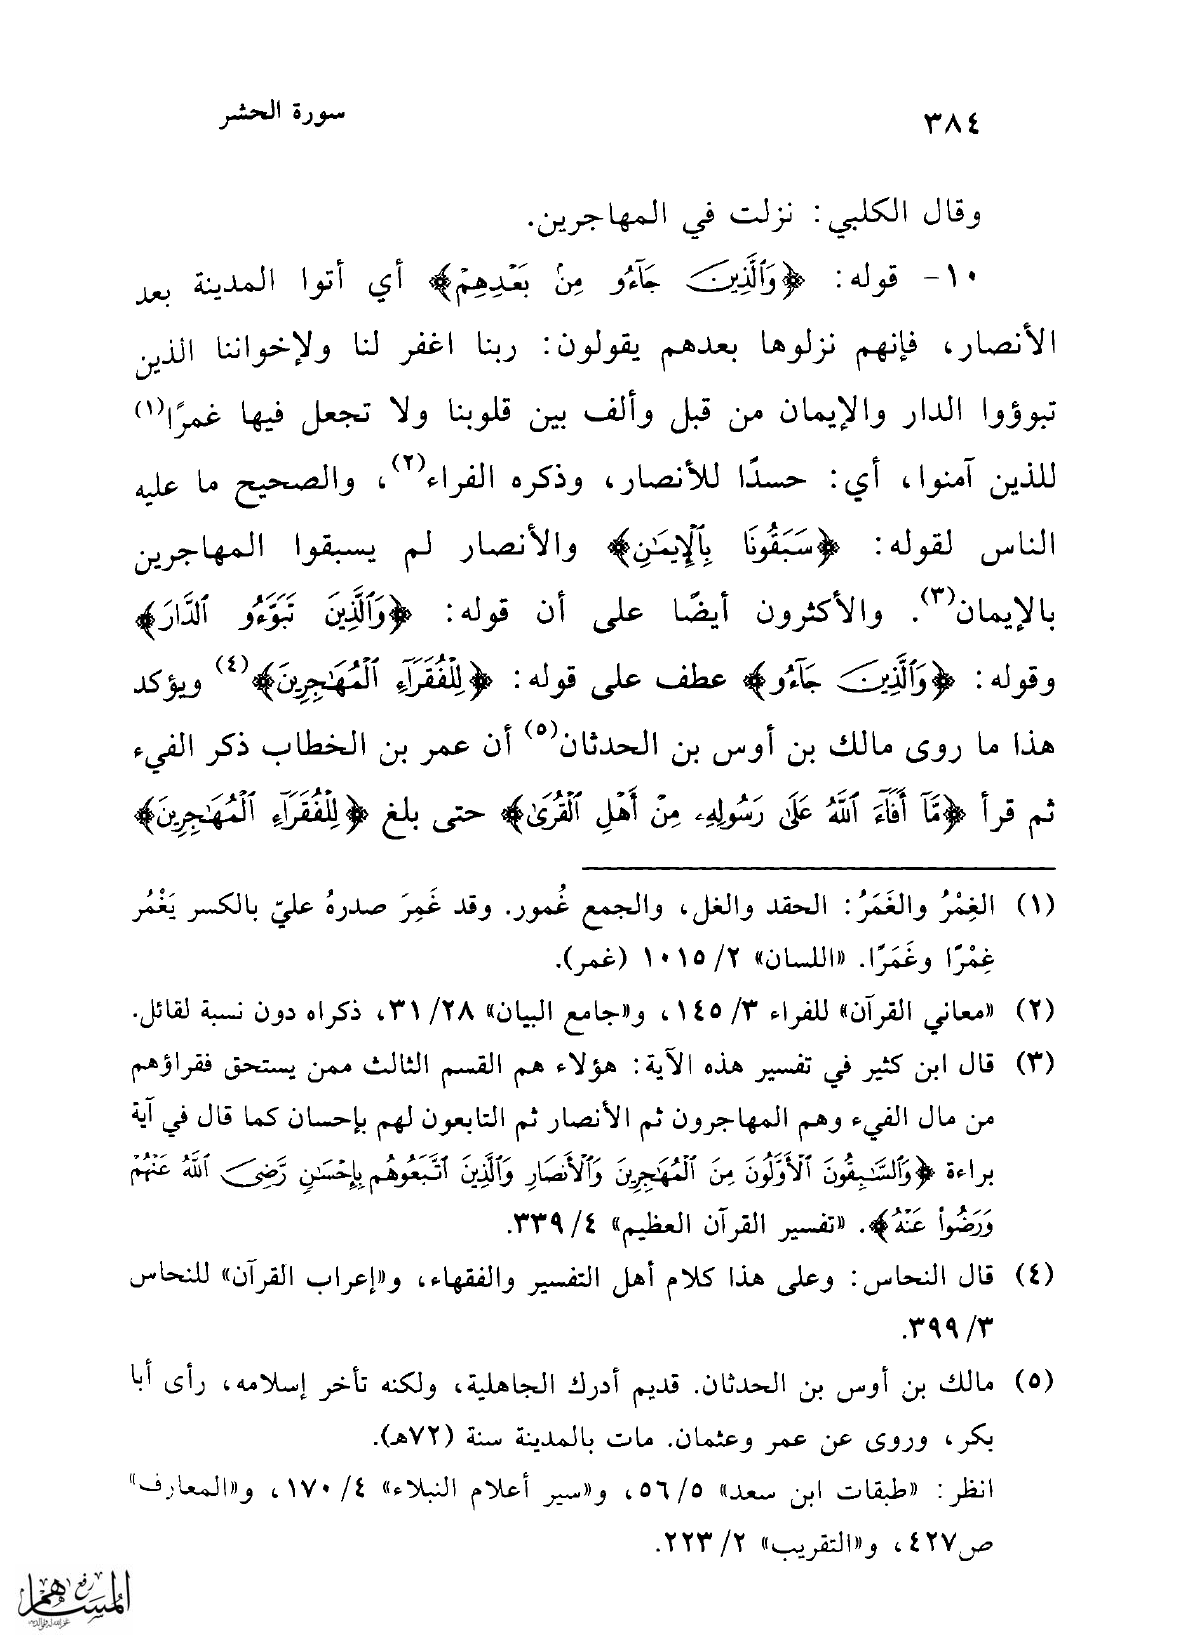 ٣٨٤
سورة الحشر
وقال الكلبي: نزلت في المهاجرين.
١٠- قوله: ﴿وَٱلَّذِينَ جَآءُو مِنۢ بَعۡدِهِمۡ﴾ أي أتوا المدينة بعد
الأنصار، فإنهم نزلوها بعدهم يقولون: ربنا اغفر لنا ولإخواننا الذين
تبوؤوا الدار والإيمان من قبل وألف بين قلوبنا ولا تجعل فيها غمرًا(١)
للذين آمنوا، أي: حسدًا للأنصار، وذكره الفراء(٢)، والصحيح ما عليه
الناس لقوله: ﴿سَبَقُونَا بِٱلۡإِيمَٰنِ﴾ والأنصار لم يسبقوا المهاجرين
بالإيمان(٣). والأكثرون أيضًا على أن قوله: ﴿وَٱلَّذِينَ تَبَوَّءُو ٱلدَّارَ﴾
وقوله: ﴿وَٱلَّذِينَ جَآءُو﴾ عطف على قوله: ﴿لِلۡفُقَرَآءِ ٱلۡمُهَٰجِرِينَ﴾(٤) ويؤكد
هذا ما روى مالك بن أوس بن الحدثان(٥) أن عمر بن الخطاب ذكر الفيء
ثم قرأ ﴿مَّآ أَفَآءَ ٱللَّهُ عَلَىٰ رَسُولِهِۦ مِنۡ أَهۡلِ ٱلۡقُرَىٰ﴾ حتى بلغ ﴿لِلۡفُقَرَآءِ ٱلۡمُهَٰجِرِينَ﴾
(١) الغِمْرُ والغَمَرُ: الحقد والغل، والجمع غُمور. وقد غَمِرَ صدرهُ عليّ بالكسر يَغْمُر
غِمْرًا وغَمَرًا. «اللسان» ٢/ ١٠١٥ (غمر).
(٢) «معاني القرآن» للفراء ٣/ ١٤٥، و«جامع البيان» ٢٨/ ٣١، ذكراه دون نسبة لقائل.
(٣) قال ابن كثير في تفسير هذه الآية: هؤلاء هم القسم الثالث ممن يستحق فقراؤهم
من مال الفيء وهم المهاجرون ثم الأنصار ثم التابعون لهم بإحسان كما قال في آية
براءة ﴿وَٱلسَّٰبِقُونَ ٱلۡأَوَّلُونَ مِنَ ٱلۡمُهَٰجِرِينَ وَٱلۡأَنصَارِ وَٱلَّذِينَ ٱتَّبَعُوهُم بِإِحۡسَٰنٖ رَّضِيَ ٱللَّهُ عَنۡهُمۡ
وَرَضُواْ عَنۡهُ﴾. «تفسير القرآن العظيم» ٤/ ٣٣٩.
(٤) قال النحاس: وعلى هذا كلام أهل التفسير والفقهاء، و«إعراب القرآن» للنحاس
٣/ ٣٩٩.
(٥) مالك بن أوس بن الحدثان. قديم أدرك الجاهلية، ولكنه تأخر إسلامه، رأى أبا
بكر، وروى عن عمر وعثمان. مات بالمدينة سنة (٧٢هـ).
انظر: «طبقات ابن سعد» ٥/ ٥٦، و«سير أعلام النبلاء» ٤/ ١٧٠، و«المعارف»
ص٤٢٧، و«التقريب» ٢/ ٢٢٣.